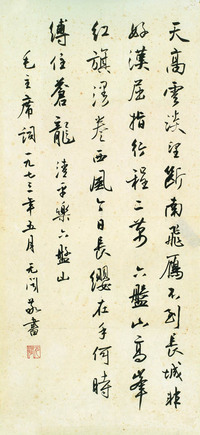 天高雲淡望断南飛雁不到長城非
好漢屈指行程二萬六盤山高峯
红旗漫卷西風今日長纓在手何時
縛住蒼龍 清平樂六盤山
毛主席詞一九七三年五月 无闻敬書